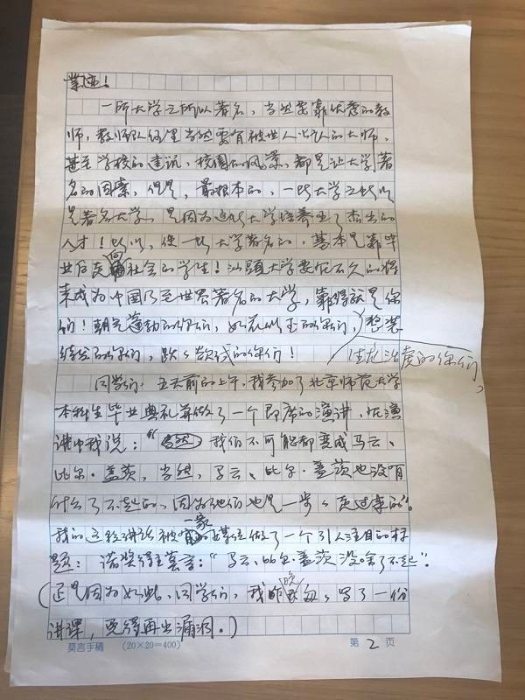 一所大学之所以著名，当然要靠优秀的教
师，教师队伍里当然要有被世人公认的大师，
甚至学校的建筑，校园的风景，都是让大学著
名的因素，但是，最根本的，一所大学之所以
是著名大学，是因为这所大学培养出了杰出的
人才！所以，使一所大学著名的，基本是靠毕
业后走向社会的学生！汕头大学要在不久的将
来成为中国乃至世界著名的大学，靠得就是你
们！朝气蓬勃的你们，如花似玉的你们，
生龙活虎的你们，
的你们，跃跃欲试的你们！
同学们，五天前的上午，我参加了北京师范大学
本科生毕业典礼并做了一个即席的演讲，在演
讲中我说：“我们不可能都变成马云、
比尔·盖茨，当然，马云、比尔·盖茨也没有
什么了不起的，因为他们也是一步步走过来的”。
我的这段讲话被一家媒体做了一个引人注目的标
题：诺奖得主莫言：“马云、比尔·盖茨没啥了不起”。
（正是因为如此，同学们，我昨晚，写了一份
讲课，免得再出漏洞。）
莫言手稿 （20×20=400） 第 2 页